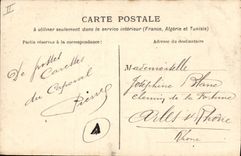 CARTE POSTALE
A utiliser seulement dans le service intérieur (France, Algérie et Tunisie)
Partie réservée à la correspondance
Adresse du destinataire
II
De grottes
Carottes
du Caporal
Pierre
A
Mademoiselle
Joséphine Blanc
chemin de la
Arles s/ Rhône
Rhône